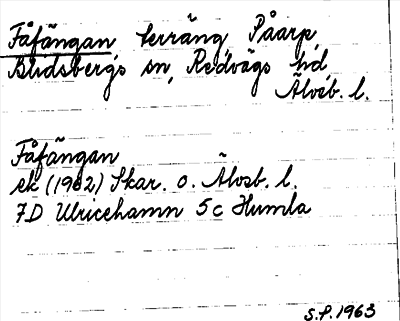 Fåfängan terräng Påarp,
Blidsbergs sn, Redvägs hd,
Älvsb. l.
Fåfängan
ek (1962) Skar. o. Älvsb. l.
7D Ulricehamn 5c Humla
S.P. 1963